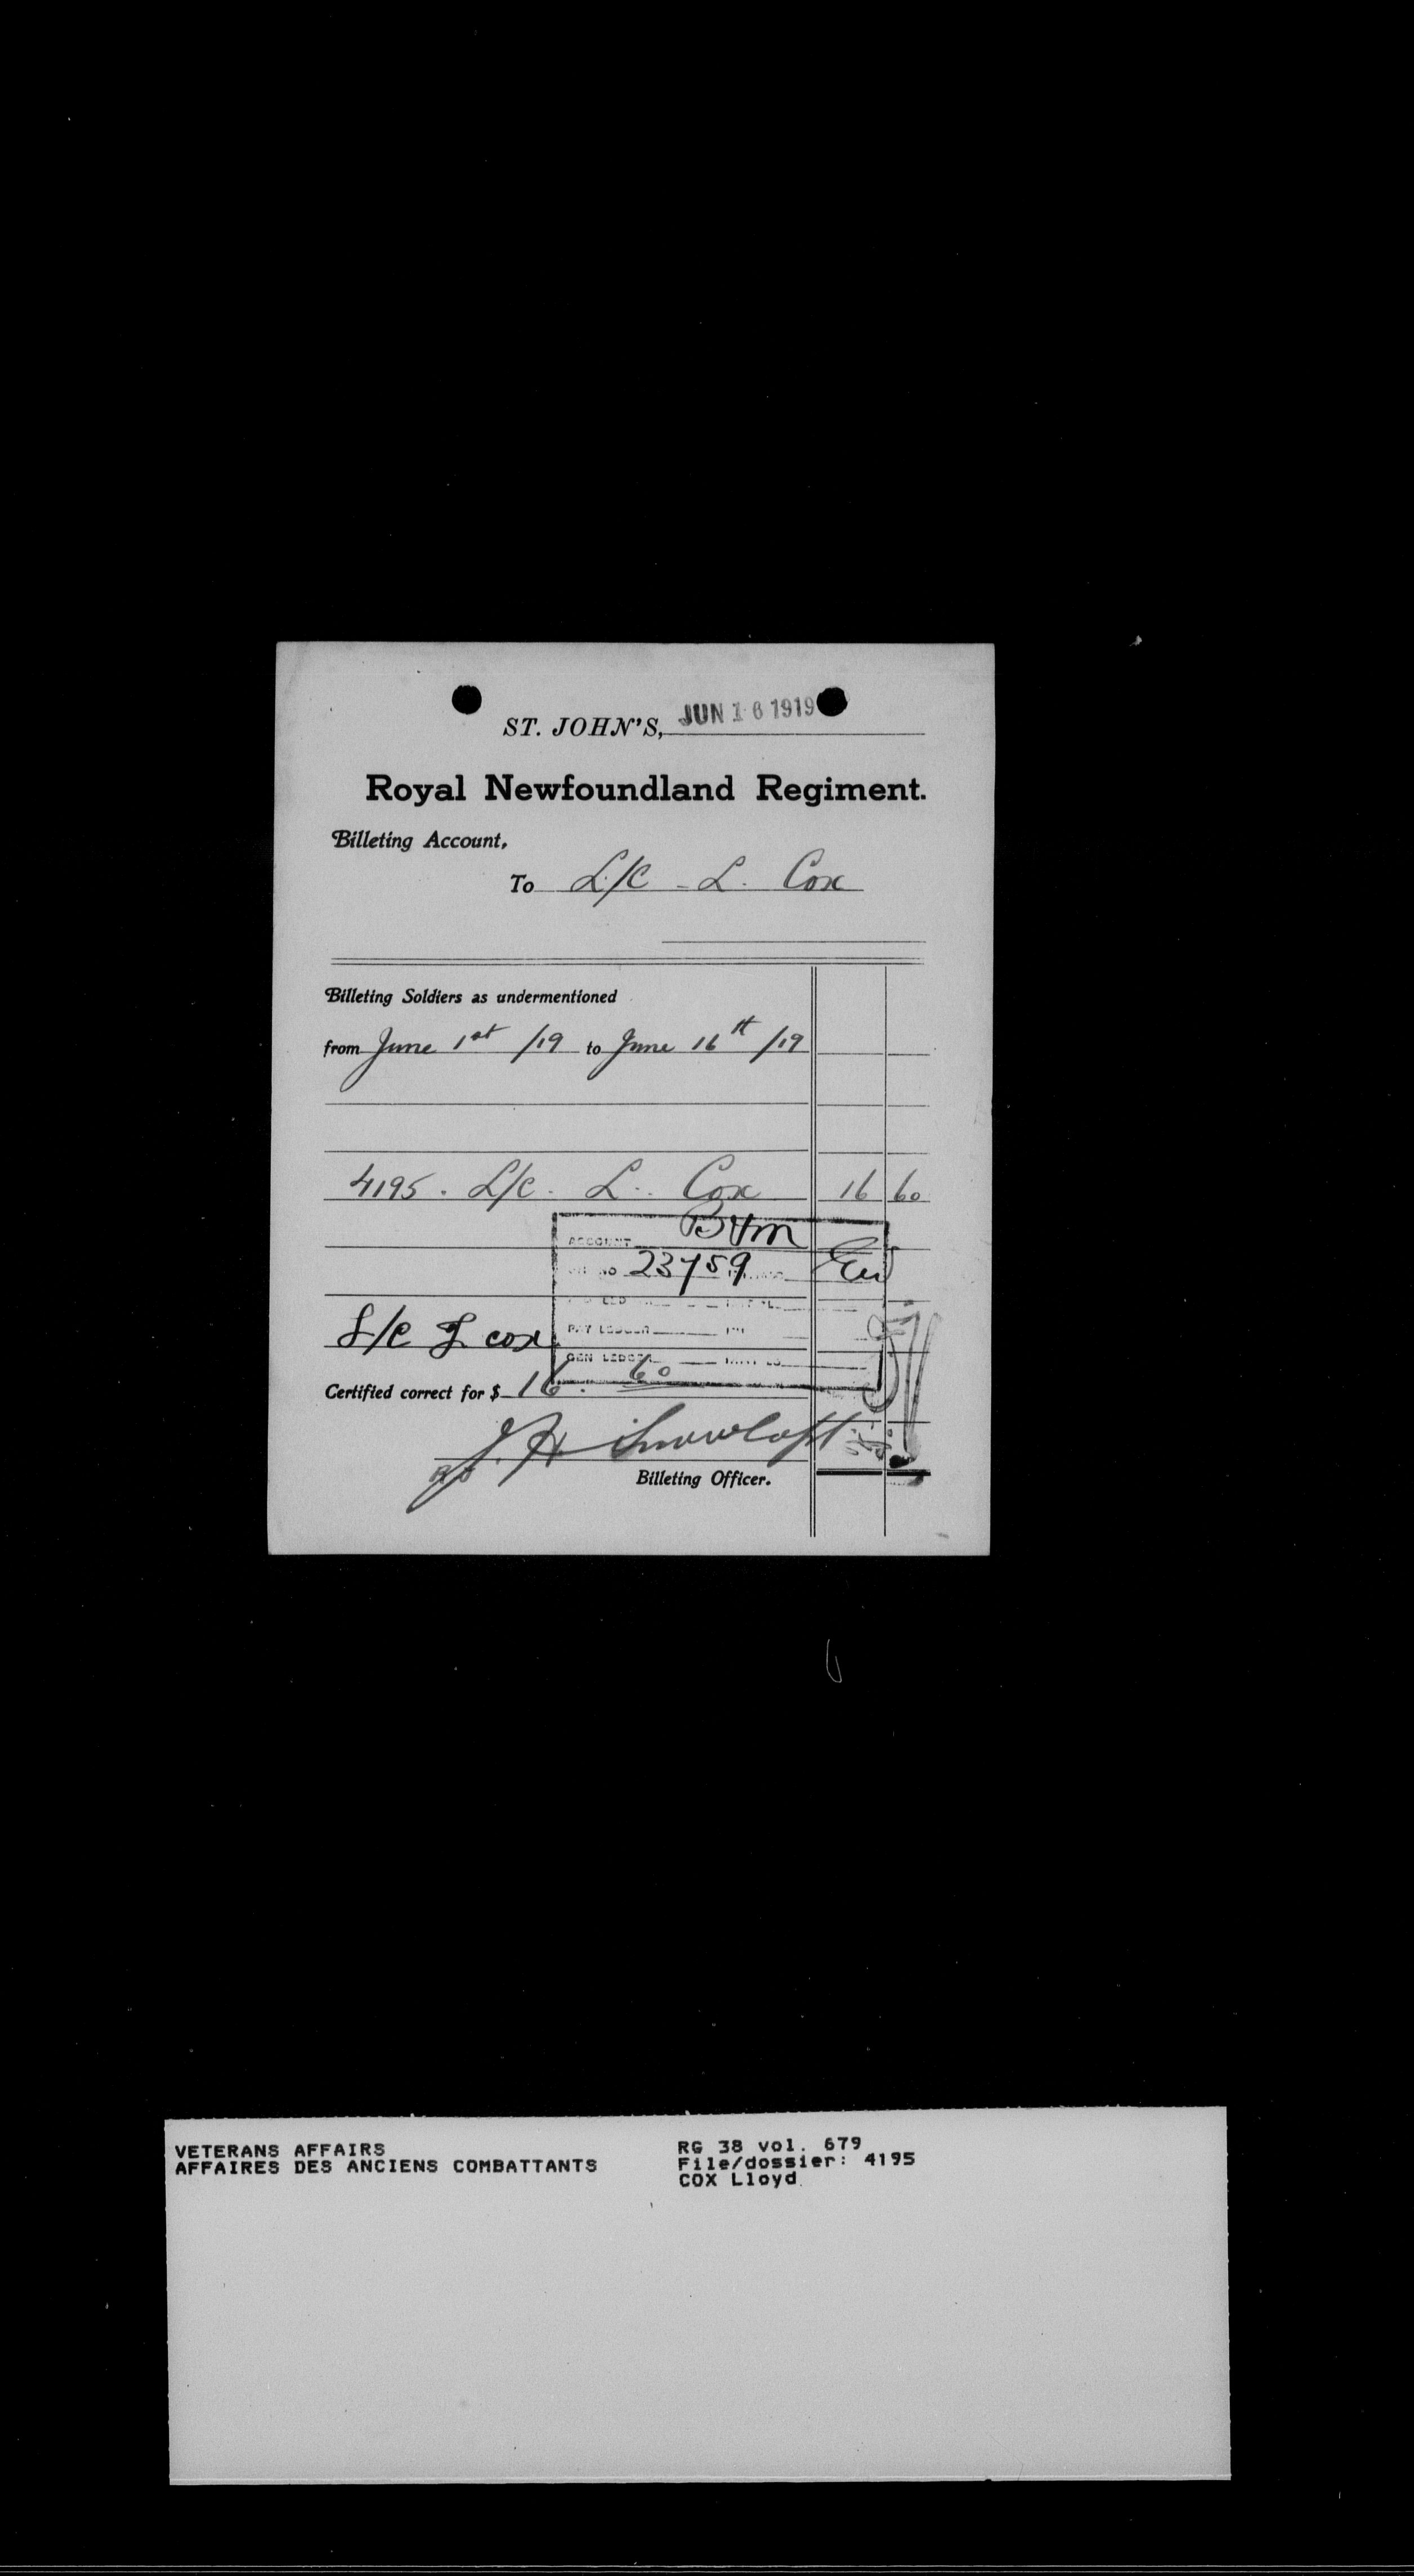 ST. JOHN'S, JUN 16 1919
Royal Newfoundland Regiment.
Billeting Account,
To L/C - L. Cox
Billeting Soldiers as undermentioned
from June 1st /19 to June 16th /19
4195. L/C. L. Cox 16 60
ACCOUNT
NO 23759
L/C L cox
PAY LEDGER
GEN LEDGER
Certified correct for $ 16. 60
Billeting Officer.
VETERANS AFFAIRS
AFFAIRES DES ANCIENS COMBATTANTS
RG 38 vol. 679
File/dossier: 4195
COX Lloyd